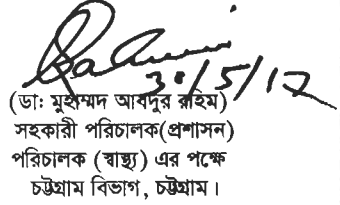 30/5/12
(ডা: মুহাম্মদ আবদুর রহিম)
সহকারী পরিচালক(প্রশাসন)
পরিচালক (স্বাস্থ্য) এর পক্ষে
চট্টগ্রাম বিভাগ, চট্টগ্রাম।